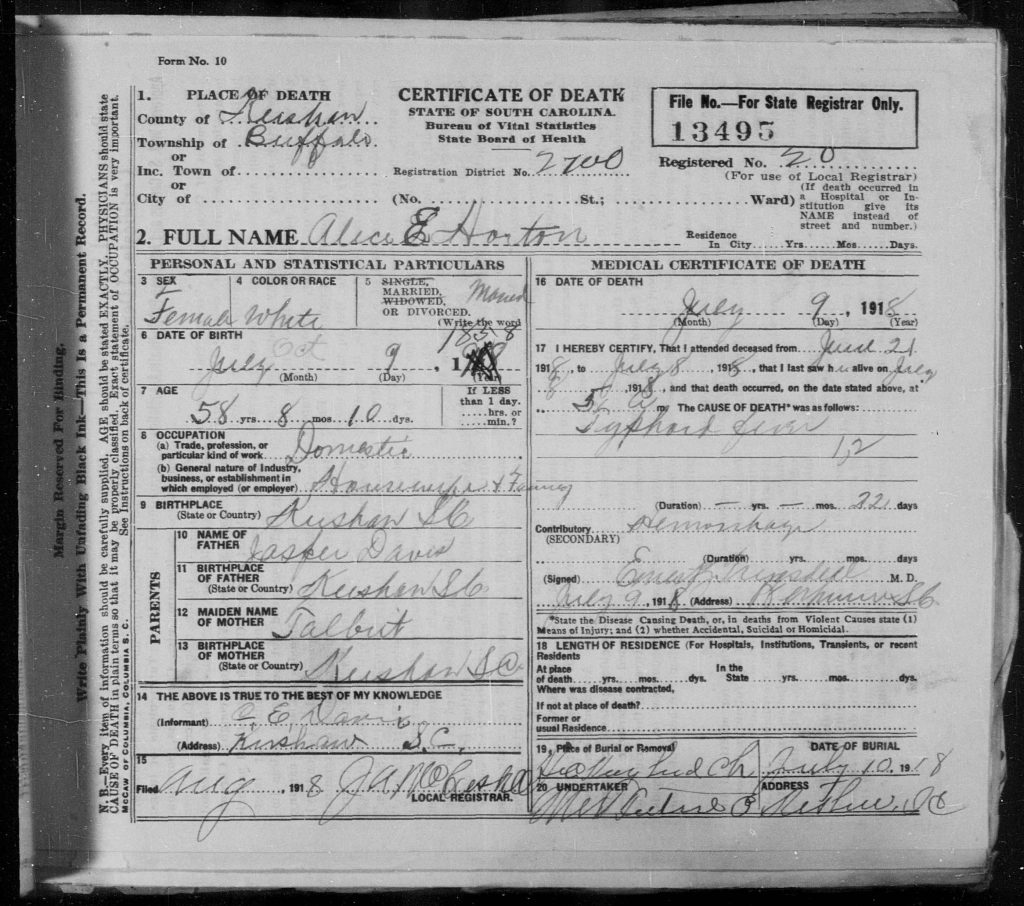 Form No. 10
1. PLACE OF DEATH
County of Kershaw
Township of Buffalo
or
Inc. Town of
or
City of
CERTIFICATE OF DEATH
STATE OF SOUTH CAROLINA.
Bureau of Vital Statistics
State Board of Health
Registration District No. 2700
(No. St.; Ward)
File No.—For State Registrar Only.
13495
Registered No. 20
(For use of Local Registrar)
(If death occurred in
a Hospital or In-
stitution give its
NAME instead of
street and number.)
2. FULL NAME Alice E Horton
Residence
In City Yrs. Mos. Days.
PERSONAL AND STATISTICAL PARTICULARS
3 SEX
Female
4 COLOR OR RACE
White
5 SINGLE,
MARRIED,
WIDOWED,
OR DIVORCED.
(Write the word
Married
6 DATE OF BIRTH
July Oct 9, 1
(Month) (Day) (Year)
7 AGE
58 yrs. 8 mos. 10 dys.
If LESS
than 1 day.
hrs. or
min.?
8 OCCUPATION
(a) Trade, profession, or
particular kind of work Domestic
(b) General nature of Industry,
business, or establishment in
which employed (or employer) Housewife &
9 BIRTHPLACE
(State or Country) Kershaw SC
PARENTS
10 NAME OF
FATHER Jasper Davis
11 BIRTHPLACE
OF FATHER
(State or Country) Kershaw SC
12 MAIDEN NAME
OF MOTHER Talbert
13 BIRTHPLACE
OF MOTHER
(State or Country) Kershaw SC
14 THE ABOVE IS TRUE TO THE BEST OF MY KNOWLEDGE
(Informant) C. E. Davis
(Address) Kershaw S.C.
15
Filed Aug 1918
LOCAL REGISTRAR.
MEDICAL CERTIFICATE OF DEATH
16 DATE OF DEATH
July 9, 1918
(Month) (Day) (Year)
17 I HEREBY CERTIFY, That I attended deceased from June 21
1918, to July 8 1918, that I last saw h alive on July
5 1918, and that death occurred, on the date stated above, at
m The CAUSE OF DEATH* was as follows:
Typhoid fever
(Duration) — yrs. — mos. 22 days
Contributory Hemorrhage
(SECONDARY)
(Duration) yrs. mos. days
(Signed) M. D.
July 9, 1918 (Address) Kershaw SC
*State the Disease Causing Death, or, in deaths from Violent Causes state (1)
Means of Injury; and (2) whether Accidental, Suicidal or Homicidal.
18 LENGTH OF RESIDENCE (For Hospitals, Institutions, Transients, or recent
Residents
At place In the
of death yrs. mos. dys. State yrs. mos. dys.
Where was disease contracted,
If not at place of death?
Former or
usual Residence
19, Place of Burial or Removal DATE OF BURIAL
Ch July 10, 1918
20 UNDERTAKER ADDRESS
Margin Reserved For Binding.
Write Plainly With Unfading Black Ink—This Is a Permanent Record.
N. B.—Every item of information should be carefully supplied. AGE should be stated EXACTLY. PHYSICIANS should state
CAUSE OF DEATH in plain terms so that it may be properly classified. Exact statement of OCCUPATION is very important.
See Instructions on back of certificate.
McCAW OF COLUMBIA, COLUMBIA S. C.